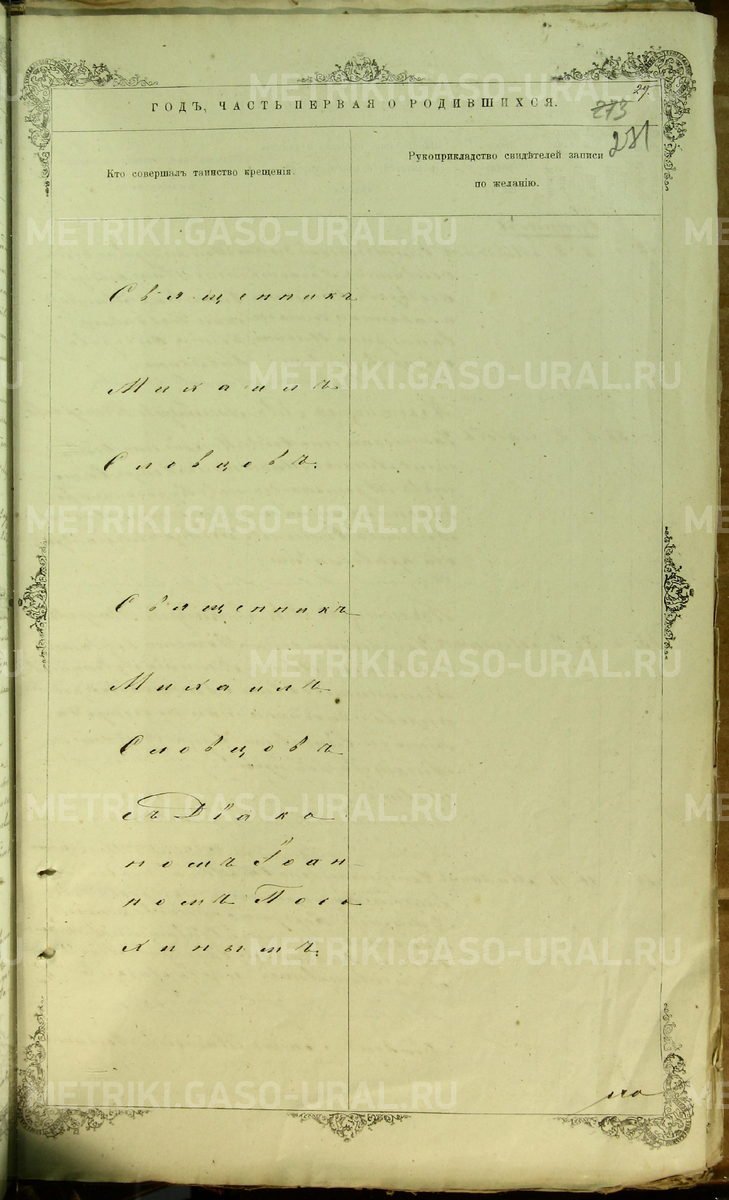 29.
ГОДЪ, ЧАСТЬ ПЕРВАЯ О РОДИВШИХСЯ.
273
281
Кто совершалъ таинство крещенія.
Рукоприкладство свидѣтелей записи
по желанію.
Священникъ
Михаилъ
Словцовъ.
Священникъ
Михаилъ
Словцовъ
съ Діако
номъ Іоан
номъ
METRIKI.GASO-URAL.RU